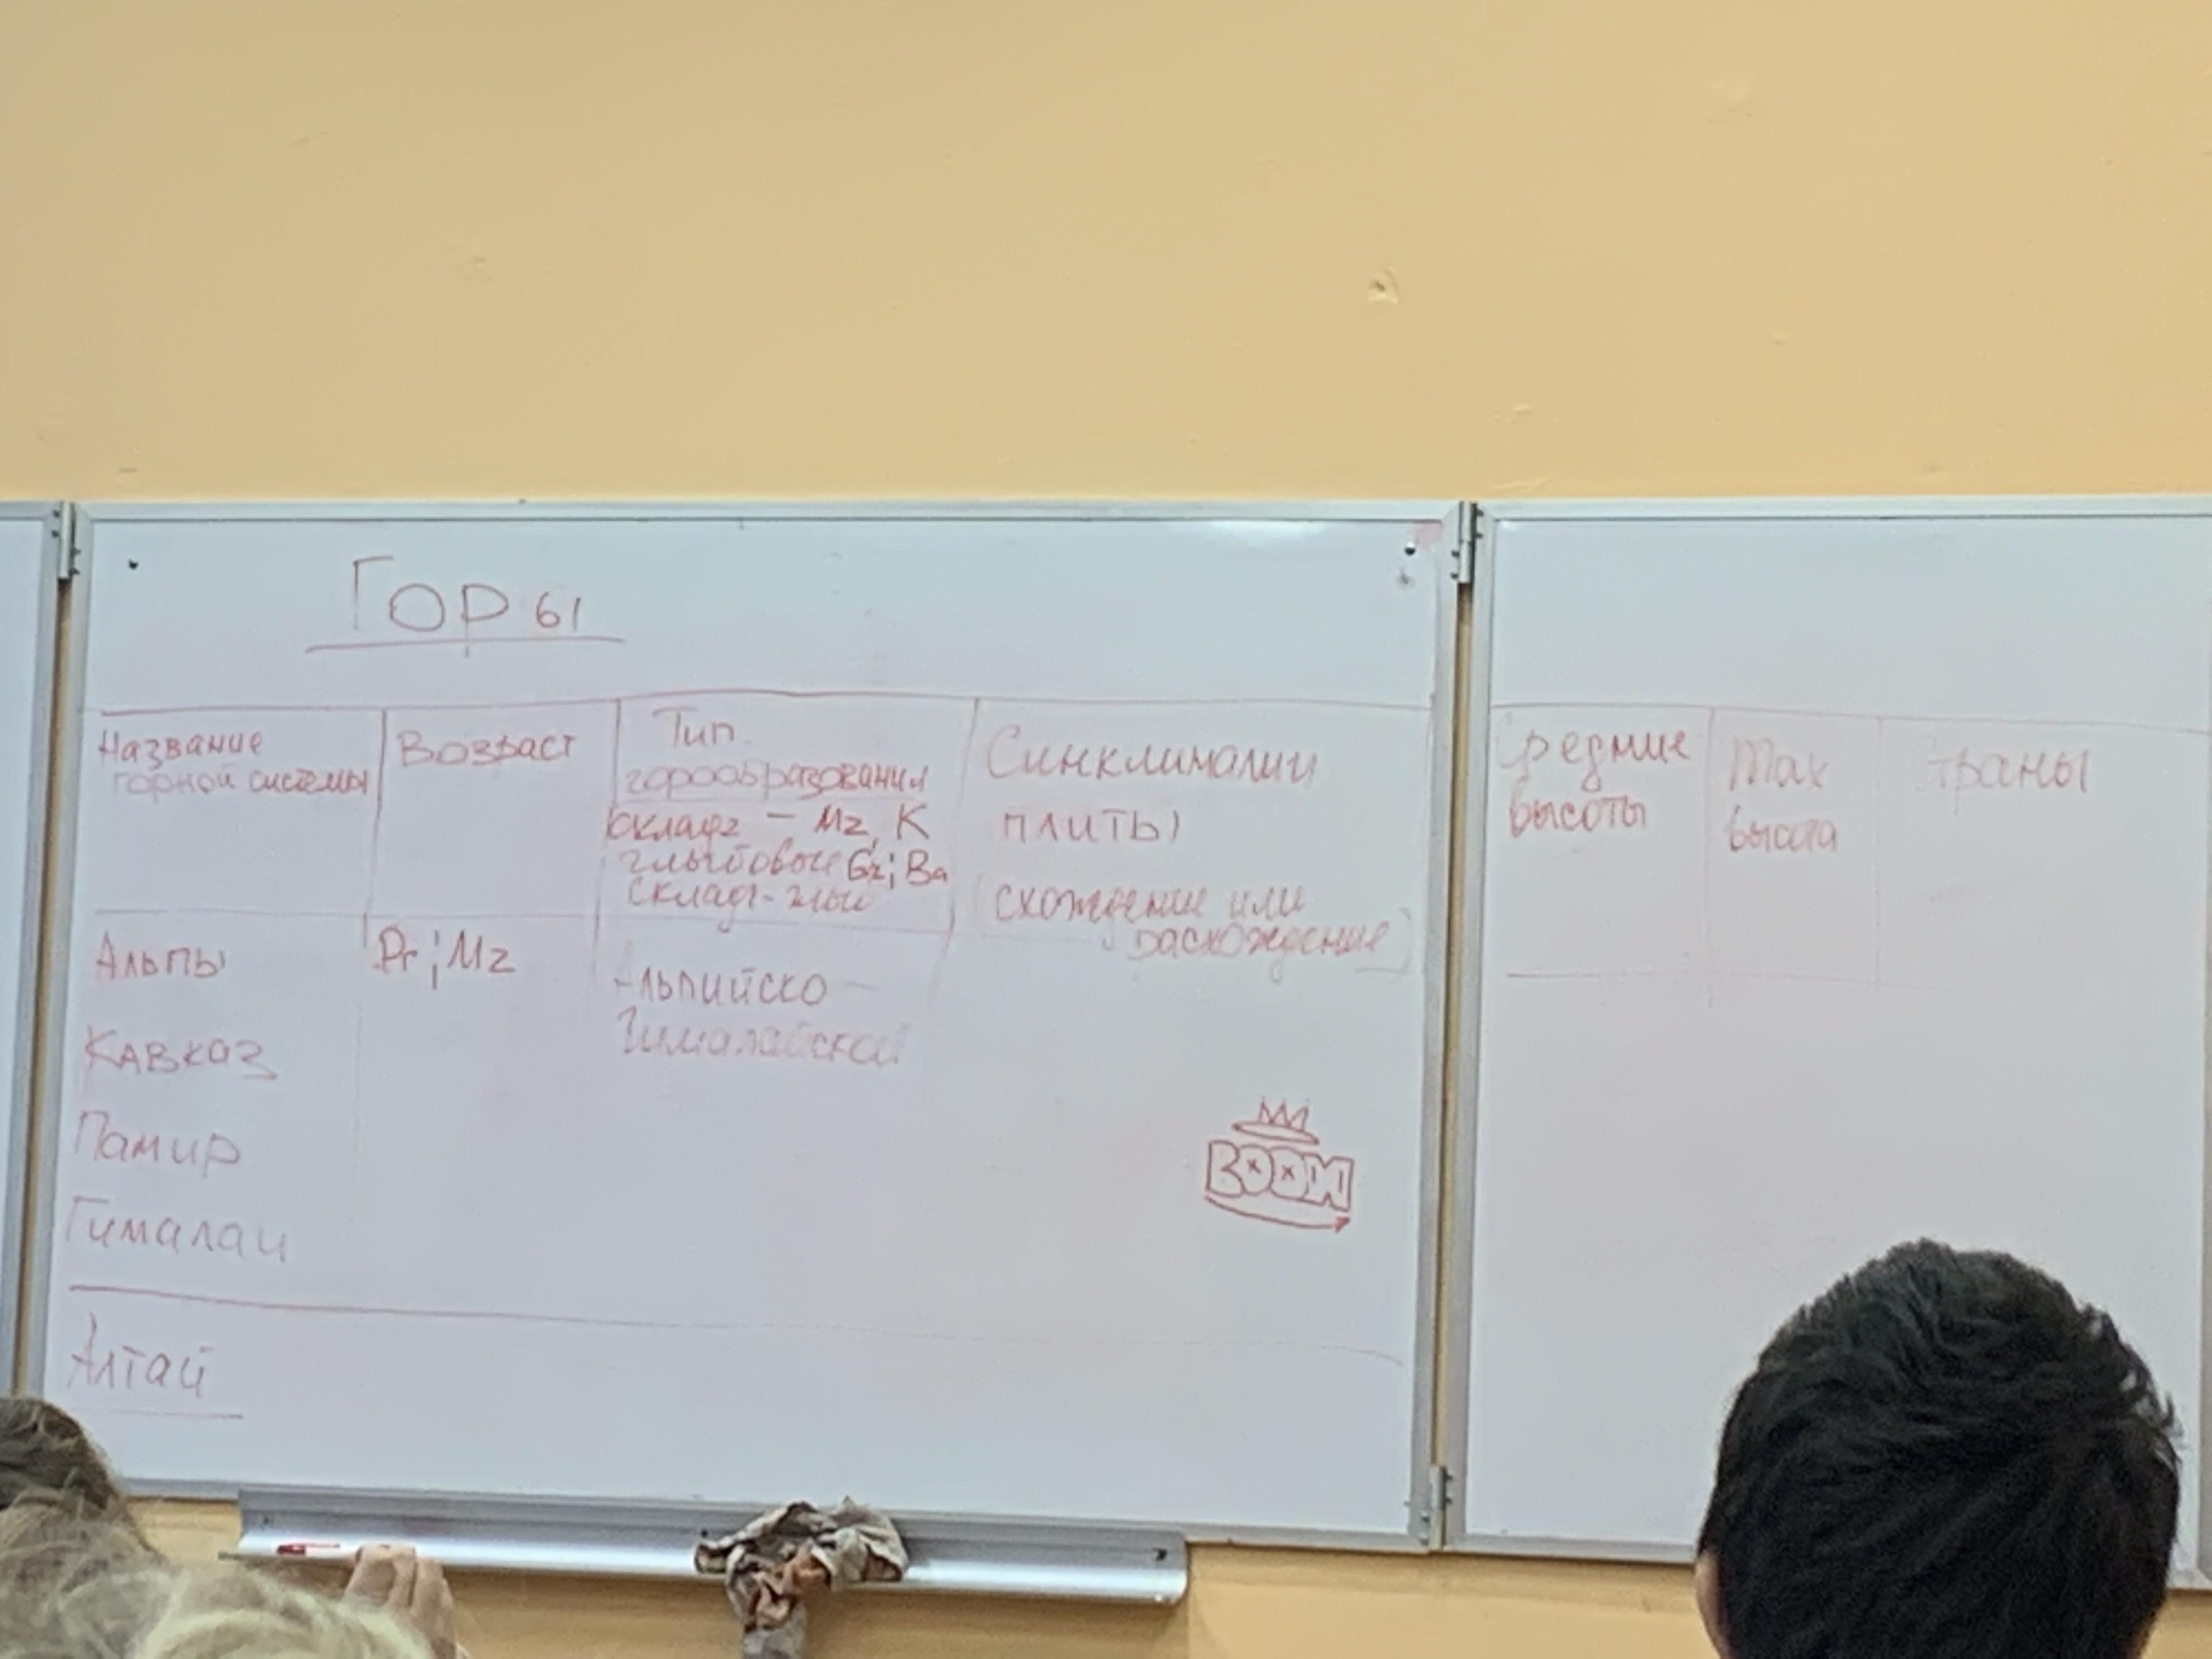 Горы
Название
горной системы
Возраст
Тип
горообразования
складч - Mz, K
глыбовые Gz; Ba
складч-глыб
Синклиналии
плиты
(схождение или
расхождение)
Средние
высоты
Max
высота
Страны
Альпы
Pr; Mz
Альпийско-
Гималайской
Кавказ
Памир
Гималаи
Алтай
BOOM